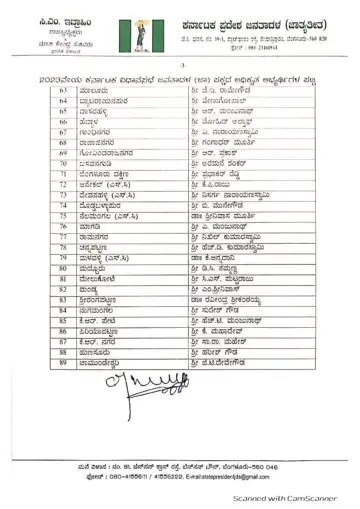 ಸಿ.ಎಂ. ಇಬ್ರಾಹಿಂ
ರಾಜ್ಯಾಧ್ಯಕ್ಷರು
ಮಾಜಿ ಕೇಂದ್ರ ಸಚಿವರು
ಕರ್ನಾಟಕ ಪ್ರದೇಶ ಜನತಾದಳ (ಜಾತ್ಯತೀತ)
-3-
2023ನೇಯ ಕರ್ನಾಟಕ ವಿಧಾನಸಭೆ ಜನತಾದಳ (ಜಾ) ಪಕ್ಷದ ಅಧಿಕೃತ ಅಭ್ಯರ್ಥಿಗಳ ಪಟ್ಟಿ
63 ಮಾಲೂರು ಶ್ರೀ ಜಿ.ಇ. ರಾಮೇಗೌಡ
64 ಬ್ಯಾಟರಾಯನಪುರ ಶ್ರೀ ವೇಣುಗೋಪಾಲ್
65 ದಾಸರಹಳ್ಳಿ ಶ್ರೀ ಆರ್. ಮಂಜುನಾಥ್
66 ಹೆಬ್ಬಾಳ ಶ್ರೀ ಮೋಹಿದ್ ಅಲ್ತಾಫ್
67 ಗಾಂಧಿನಗರ ಶ್ರೀ ವಿ. ನಾರಾಯಣಸ್ವಾಮಿ
68 ರಾಜಾಜಿನಗರ ಶ್ರೀ ಗಂಗಾಧರ್ ಮೂರ್ತಿ
69 ಗೋವಿಂದರಾಜನಗರ ಶ್ರೀ ಆರ್. ಪ್ರಕಾಶ್
70 ಬಸವನಗುಡಿ ಶ್ರೀ ಅರಮನೆ ಶಂಕರ್
71 ಬೆಂಗಳೂರು ದಕ್ಷಿಣ ಶ್ರೀ ಪ್ರಭಾಕರ್ ರೆಡ್ಡಿ
72 ಆನೇಕಲ್ (ಎಸ್.ಸಿ) ಶ್ರೀ ಕೆ.ಪಿ.ರಾಜು
73 ದೇವನಹಳ್ಳಿ (ಎಸ್.ಸಿ) ಶ್ರೀ ನಿಸರ್ಗ ನಾರಾಯಣಸ್ವಾಮಿ
74 ದೊಡ್ಡಬಳ್ಳಾಪುರ ಶ್ರೀ ಬಿ. ಮುನೇಗೌಡ
75 ನೆಲಮಂಗಲ (ಎಸ್.ಸಿ) ಡಾಃ ಶ್ರೀನಿವಾಸ ಮೂರ್ತಿ
76 ಮಾಗಡಿ ಶ್ರೀ ಎ. ಮಂಜುನಾಥ್
77 ರಾಮನಗರ ಶ್ರೀ ನಿಖಿಲ್ ಕುಮಾರಸ್ವಾಮಿ
78 ಚನ್ನಪಟ್ಟಣ ಶ್ರೀ ಹೆಚ್.ಡಿ. ಕುಮಾರಸ್ವಾಮಿ
79 ಮಳವಳ್ಳಿ (ಎಸ್.ಸಿ) ಡಾಃ ಕೆ.ಅನ್ನದಾನಿ
80 ಮದ್ದೂರು ಶ್ರೀ ಡಿ.ಸಿ. ತಮ್ಮಣ್ಣ
81 ಮೇಲುಕೋಟೆ ಶ್ರೀ ಸಿ.ಎಸ್. ಪುಟ್ಟರಾಜು
82 ಮಂಡ್ಯ ಶ್ರೀ ಎಂ.ಶ್ರೀನಿವಾಸ್
83 ಶ್ರೀರಂಗಪಟ್ಟಣ ಡಾಃ ರವೀಂದ್ರ ಶ್ರೀಕಂಠಯ್ಯ
84 ನಾಗಮಂಗಲ ಶ್ರೀ ಸುರೇಶ್ ಗೌಡ
85 ಕೆ.ಆರ್. ಪೇಟೆ ಶ್ರೀ ಹೆಚ್.ಟಿ. ಮಂಜುನಾಥ್
86 ಪಿರಿಯಾಪಟ್ಟಣ ಶ್ರೀ ಕೆ. ಮಹಾದೇವ್
87 ಕೆ.ಆರ್. ನಗರ ಶ್ರೀ ಸಾ.ರಾ. ಮಹೇಶ್
88 ಹುಣಸೂರು ಶ್ರೀ ಹರೀಶ್ ಗೌಡ
89 ಚಾಮುಂಡೇಶ್ವರಿ ಶ್ರೀ ಜಿ.ಟಿ.ದೇವೇಗೌಡ
ಮನೆ ವಿಳಾಸ : ನಂ. 81, ಬೆನ್‌ಸನ್ ಕ್ರಾಸ್ ರಸ್ತೆ, ಬೆನ್‌ಸನ್ ಟೌನ್, ಬೆಂಗಳೂರು-560 046
ಫೋನ್ : 080-41556111 / 41556222, E-mail:statepresidentjds@gmail.com
Scanned with CamScanner